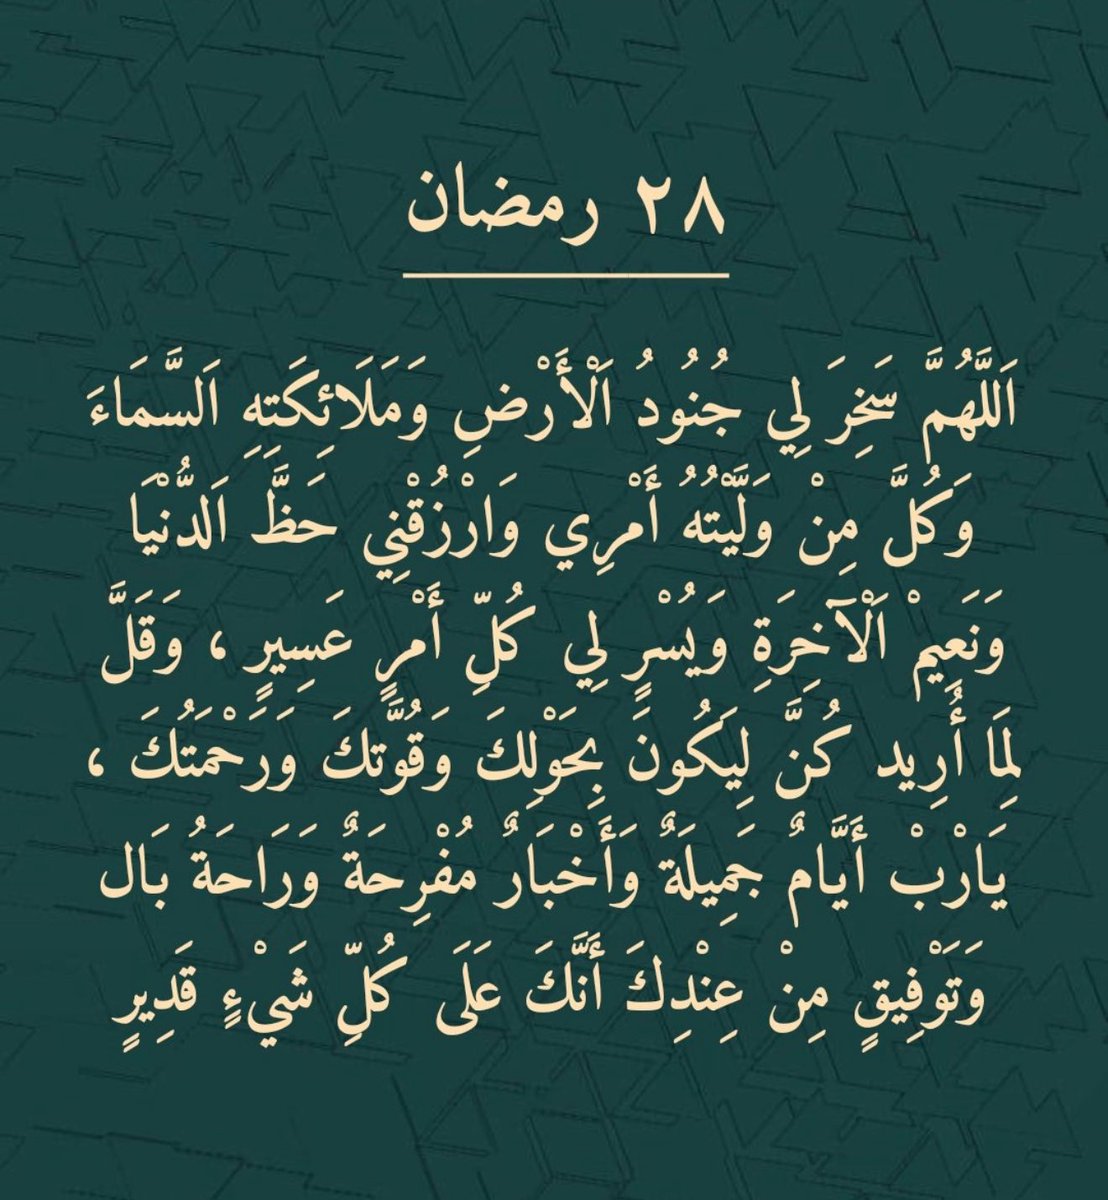 ٢٨ رمضان
اَللَّهُمَّ سَخِرَ لِي جُنُودُ اَلْأَرْضِ وَمَلَائِكَتِهِ اَلسَّمَاءَ
وَكُلَّ مِنْ وَلَّيْتُهُ أَمْرِي وَارْزُقْنِي حَظَّ اَلدُّنْيَا
وَنَعِيمْ اَلْآخِرَةِ وَيُسْرٍ لِي كُلِّ أَمْرٍ عَسِيرٍ ، وَقَلَّ
لِمَا أُرِيد كُنَّ لِيَكُونَ بِحَوْلِكَ وَقُوَّتكَ وَرَحْمَتُكَ ،
يَارْبْ أَيَّامٌ جَمِيلَةٌ وَأَخْبَارٌ مُفْرِحَةٌ وَرَاحَةُ بَال
وَتَوْفِيقٍ مِنْ عِنْدِكَ أَنَّكَ عَلَى كُلِّ شَيْءٍ قَدِيرٍ